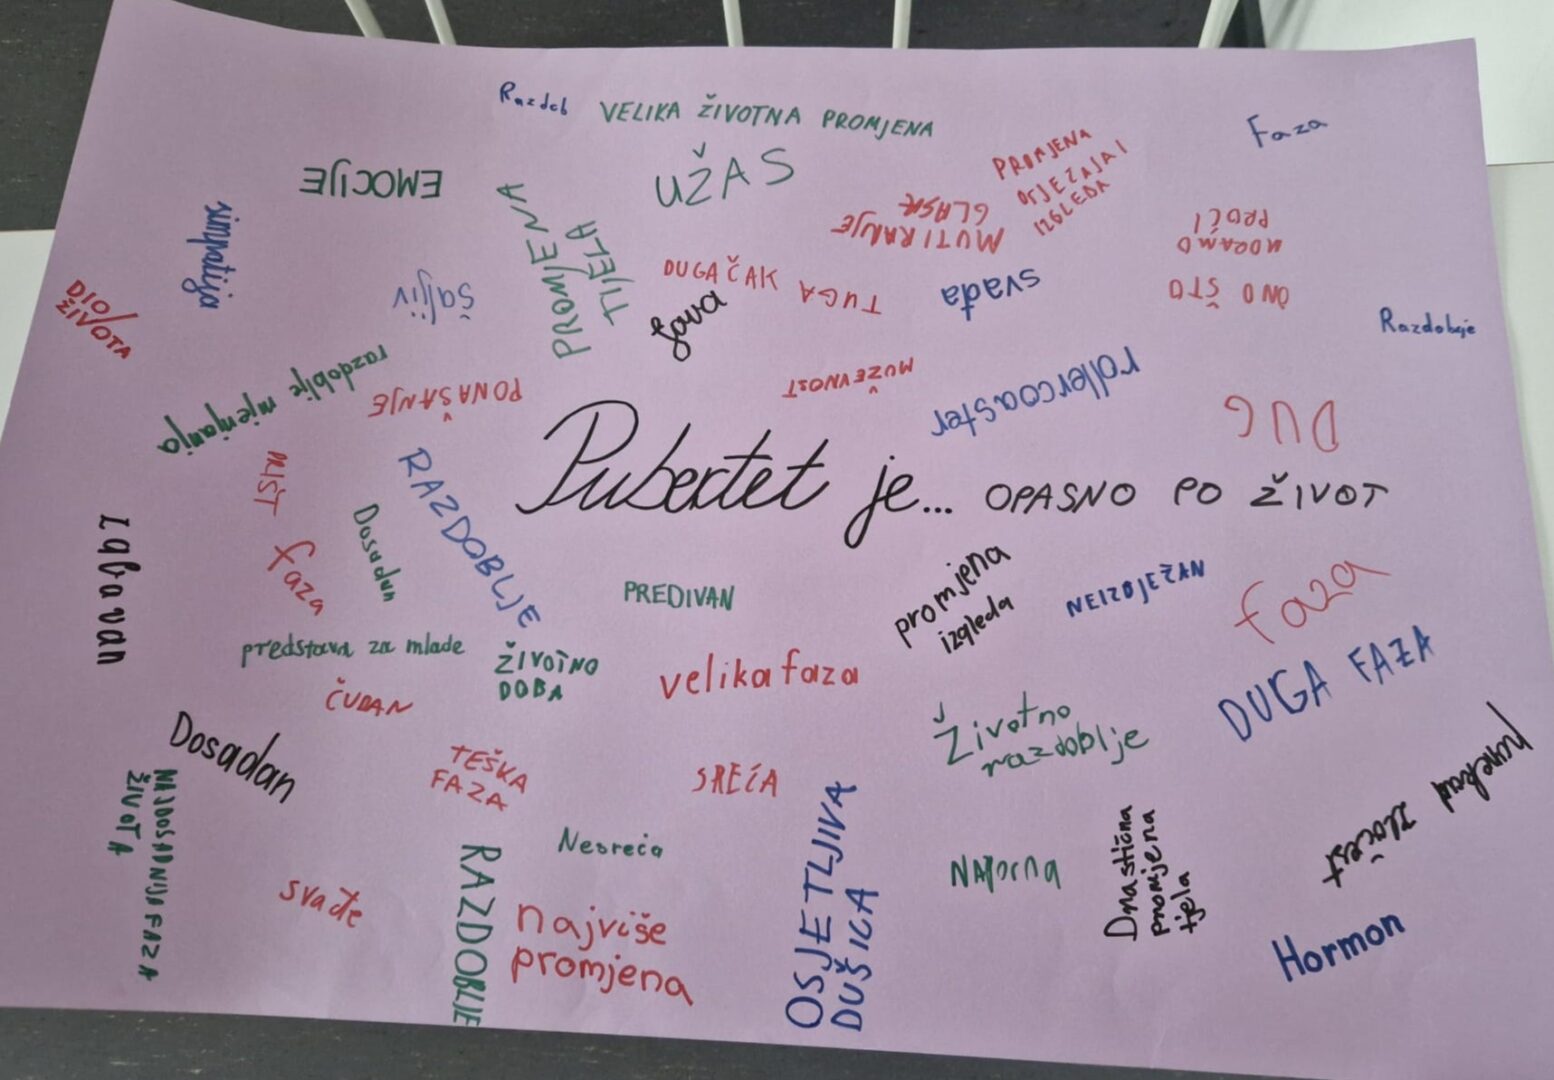 Razdob
VELIKA ŽIVOTNA PROMJENA
Faza
EMOCIJE
UŽAS
PROMJENA
OSJEZAJA I
IZGLEDA
simpatija
PROMJENA
TIJELA
MUTIRANJE
GLASA
ONO ŠTO
MORAMO
PROĆI
DIO
ŽIVOTA
šaljiv
DUGAČAK
TUGA
svađa
Razdobje
razdoblje mjenjanja
PONAŠANJE
MUŽEVNOST
rollercoaster
DUG
Pubertet je... OPASNO PO ŽIVOT
Zabavan
faza
Dosadan
RAZDOBLJE
PREDIVAN
promjena
izgleda
faza
predstava za mlade
ŽIVOTNO
DOBA
velika faza
DUGA FAZA
ČUDAN
Dosadan
Životno
razdoblje
TEŠKA
FAZA
SREĆA
NAJDOSADNIJU FAZA
ŽIVOTA
OSJETLJIVA
DUŠICA
Nesreća
Naporna
zločest
svađe
RAZDOBLJE
najviše
promjena
promjena
tjela
Hormon